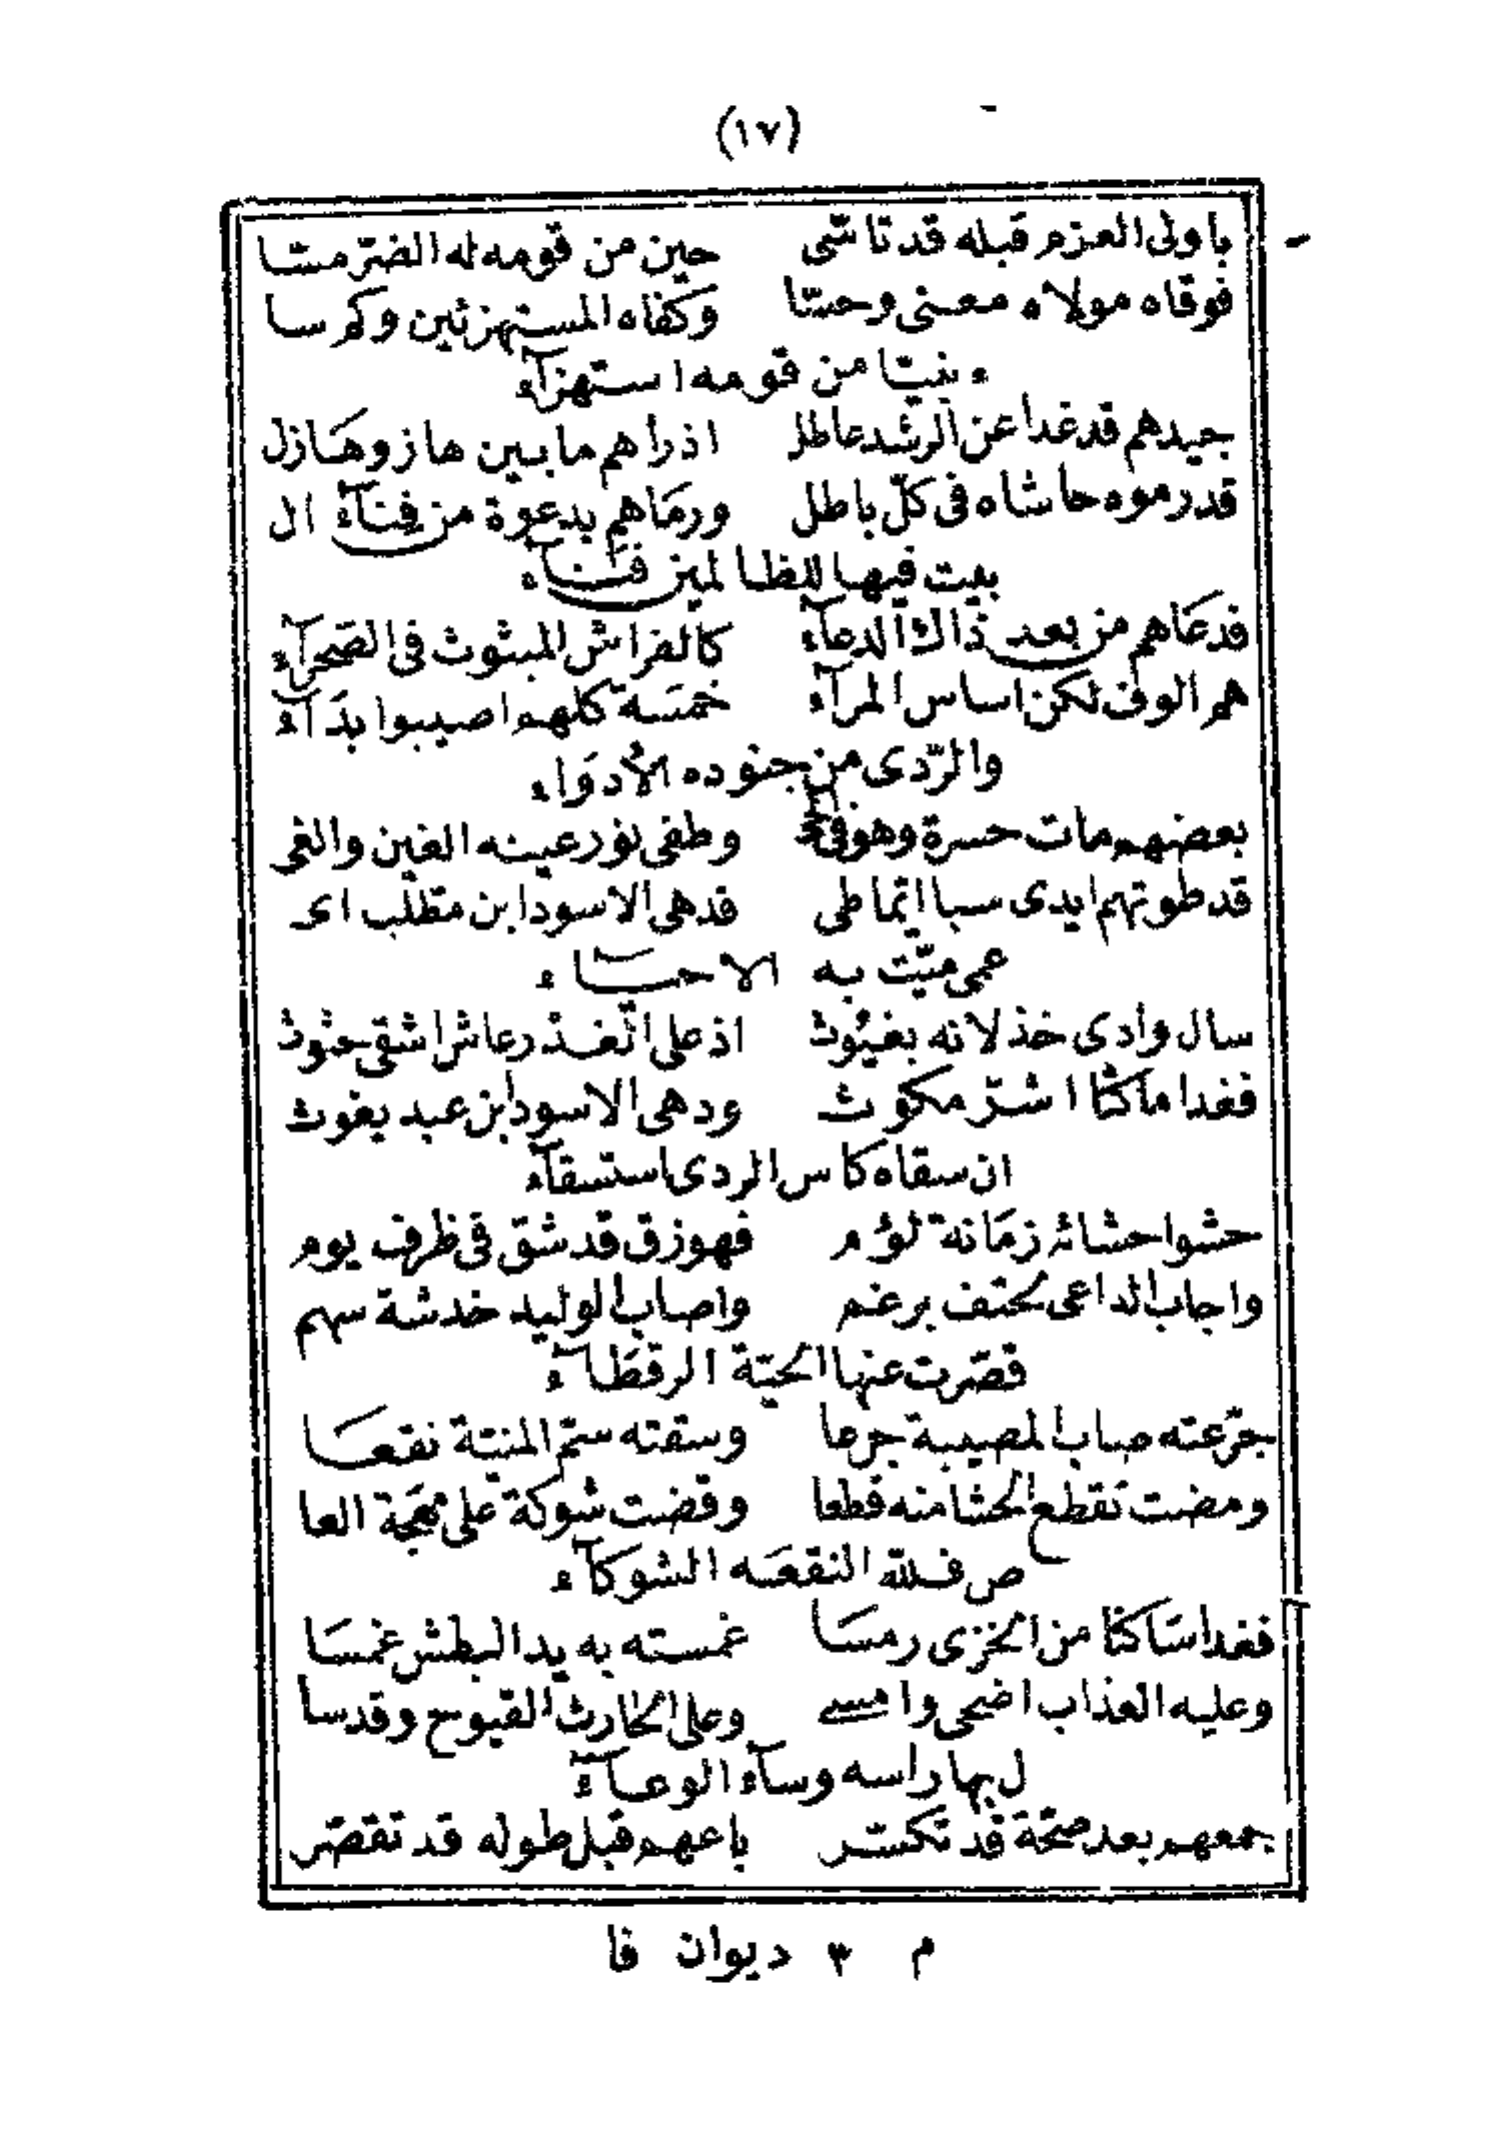 (١٧)
باولى العزم قبله قد تاسّى حين من قومه له الضرّ مسّا
فوقاه مولاه معنى وحسّا وكفاه المستهزئين وكم سا
ء نبيّا من قومه استهزآء
جيدهم قد غدا عن الرشد عاطل اذ رأهم ما بين هاز وهَازل
قد رموه حاشاه فى كلّ باطل ورمَاهم بدعوة من فِنآءِ ال
بيت فيها للظالمين فَنآء
فدعَاهم من بعد ذاك الدعآء كالفراش المبثوث فى الصَحرآء
هم الوف لكن اساس المرآء خمسَة كلهم اصيبوا بدَآء
والرّدى من جنوده الأدوَاء
بعضهم مات حسرة وهو فى وطفى نور عينه الغين والغى
قد طوتهم ايدى سبا ايّما طى فدهى الاسود ابن مطّلب اى
عمى ميّت به الاحيَاء
سال وادى خذلانه بغيُوث اذ على الغدر عاش اشقى خبوث
فغدا ماكثا اشرّ مكوث ودهى الاسود ابن عبد يغوث
ان سقاه كاس الردى استسقآء
حشوا حشائه زمَانة لؤم فهو زق قد شقّ فى ظرف يوم
واجاب الداعى بحتف برغم واصاب الوليد خدشة سهم
قصّرت عنها الحيّة الرقطآء
جرّعته صاب المصيبة جرعا وسقته سمّ المنيّة نقعَا
ومضت تقطع الحشا منه قطعا وقضت شوكة على مهجة العا
ص فللّه النقعَه الشوكآء
فغدا سَاكنا من الخزى رمسَا غمسته به يد البطش غمسَا
وعليه العذاب اضحى وامسى وعلى الحارث القيوح وقد سا
ل بها راسه وسآء الوعآء
جمعهم بعد صحّة قد تكسّر باعهم قبل طوله قد تقصّر
م ٣ ديوان فا